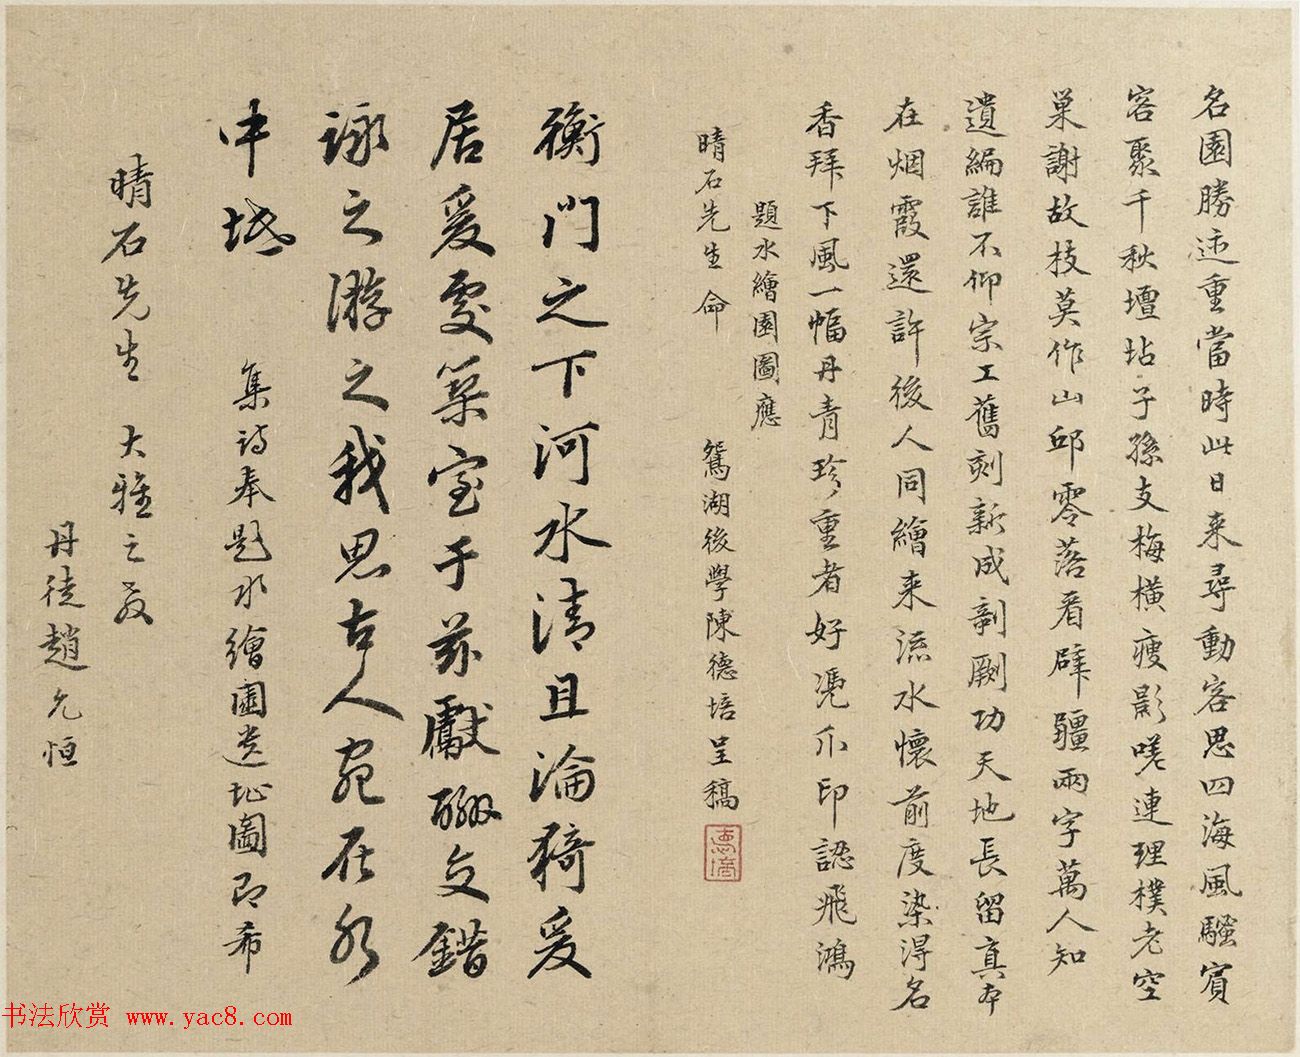 名園勝迹重當時此日来尋動客思四海風騷賓
客聚千秋壇坫子孫支梅橫瘦影嗟連理樸老空
巢謝故枝莫作山邱零落看辟疆兩字萬人知
遺編誰不仰宗工舊刻新成剞劂功天地長留真本
在烟霞還許後人同繪来流水懷前度染得名
香拜下風一幅丹青珍重者好憑爪印認飛鴻
題水繪園圖應
晴石先生命
鴛湖後學陳德培呈稿
德培
衡門之下河水清且淪猗爰
居爰處築室于茲獻酬交錯
詠之游之我思古人宛在水
中坻
集詩奉題水繪園遺址圖即希
晴石先生大雅之教
丹徒趙允恒
书法欣赏 www.yac8.com